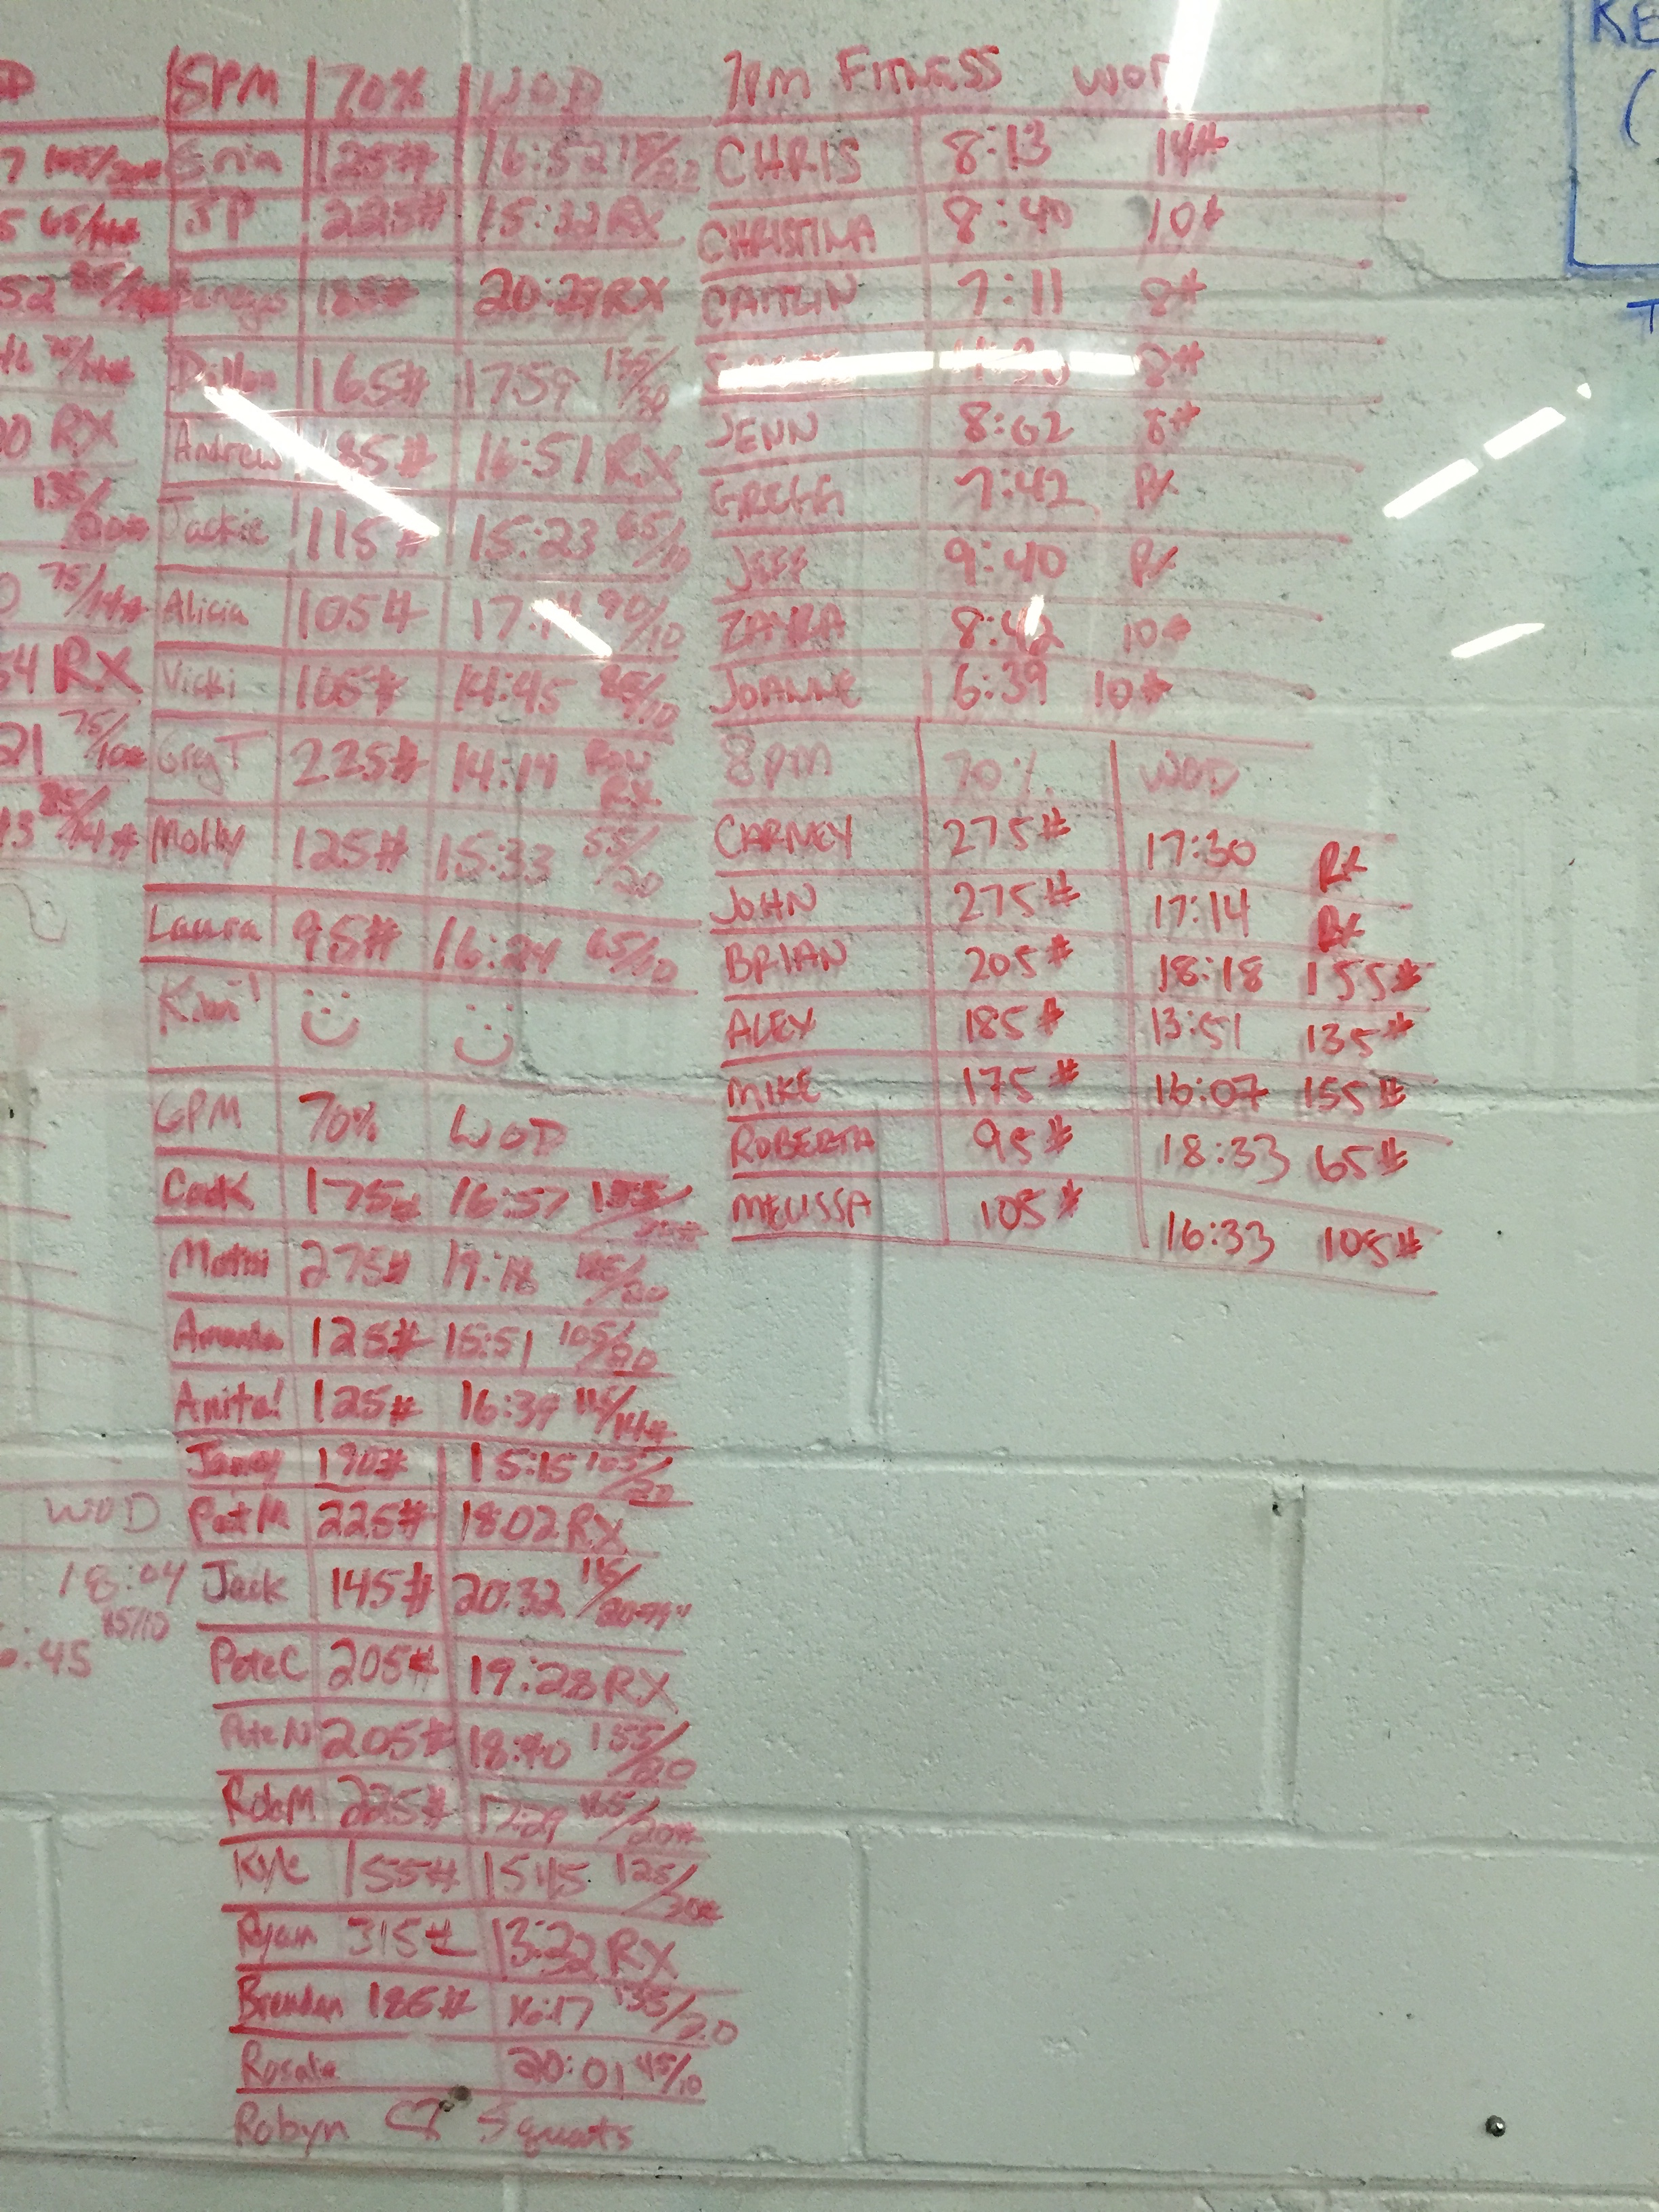 5PM 70% WOD
Erin 125# 16:52 75/
JP 225# 15:22 RX
185# 20:29 RX
Dillon 165# 17:59 135/20
Andrew 185# 16:51 RX
Jackie 115# 15:23 65/10
Alicia 105# 90/10
Vicki 105# 14:45 /10
Greg T 225# 14:14 RX
Molly 125# 15:33 55/20
Laura 95# 16:24 65/10
Kimi
6PM 70% WOD
175# 16:57 155/
275# 19:18 /20
Amanda 125# 15:51 105/20
Anita! 125# 16:39 115/14#
190# 15:15 105/20
Pat M 225# 18:02 RX
Jack 145# 20:32 115/
Pete C 205# 19:28 RX
Pete N 205# 18:40 155/20
Rob M 225# 17:29 165/20#
Kyle 155# 15:45 125/20#
Ryan 315# 13:22 RX
Brendan 185# 16:17 135/20
Rosalie 20:01 45/10
Robyn Squats
7PM FITNESS WOD
CHRIS 8:13 14#
CHRISTINA 8:40 10#
CAITLIN 7:11 8#
8#
JENN 8:02 8#
GREGG 7:42 RX
JEFF 9:40 RX
ZAYRA 8:42 10#
JOANNE 6:39 10#
8PM 70% WOD
CARNEY 275# 17:30 RX
JOHN 275# 17:14 RX
BRIAN 205# 18:18 155#
ALEX 185# 13:51 135#
MIKE 175# 16:07 155#
ROBERTA 95# 18:33 65#
MELISSA 105# 16:33 105#
65/14#
RX
135/
75/14#
RX
75/10#
WOD
18:04
85/10
:45
KE
(
T